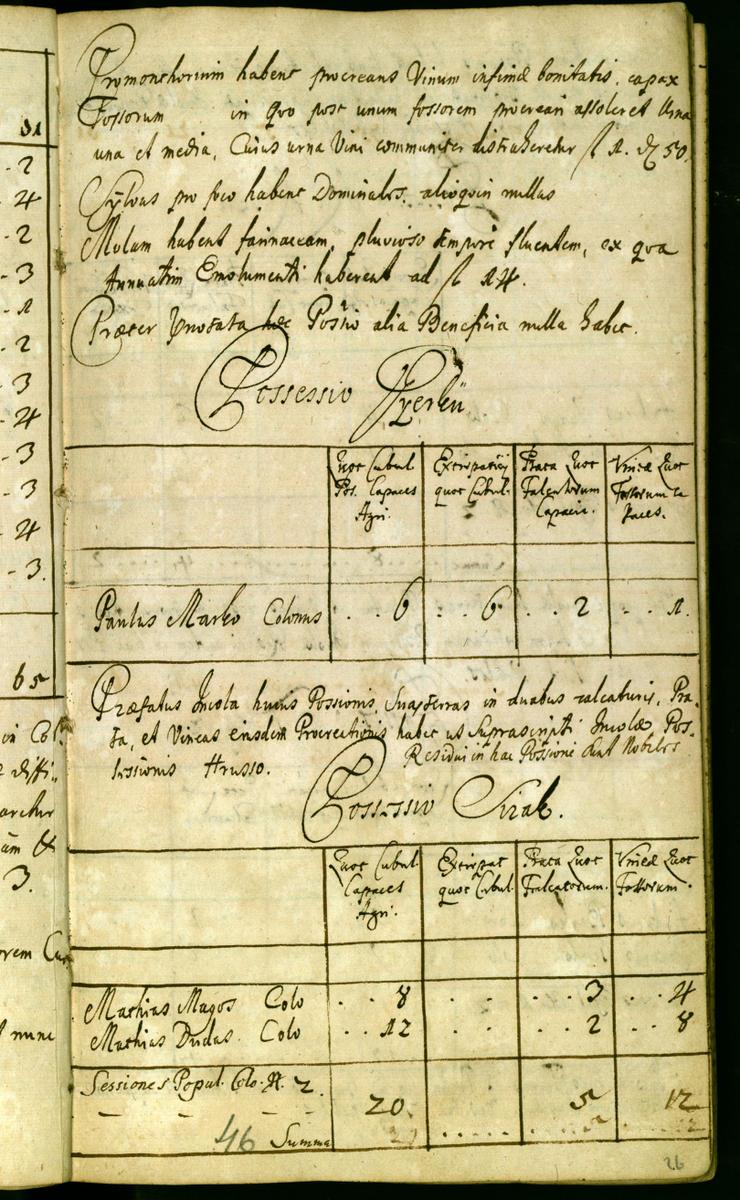 31
- 2
4
- 2
- 3
- 1
- 2
3
4
- 3
- 3
4
- 3.
65
3.
Promonthorium habent procreans Vinum infimæ bonitatis, capax
Fossorum in quo post unum fossorem procreari assoleret Urna
una et media, Cuius urna Vini communiter distraheretur fl 1. 50.
Sylvas pro foco habent Dominales, alioquin nullas
Molam habent farinaceam, pluvioso tempore fluentem, ex qua
Annuatim Emolumenti haberent ad fl 14.
Præter hæc Possio alia Beneficia nulla habet.
Possessio
Quot Cubul. Pos. Capaces Agri. Extirpatitij quot Cubul. Prata Quot Falcatorum Capacia. Vineæ Quot Fossorum Capaces.
Paulus Marko Colonus . . 6 . . 6 . . 2 . . 1.
Præfatus Incola huius Possionis, Suas terras in duabus calcaturis, Pra-
ta, et Vineas eiusdem Procreationis habet ut Suprascripti Incolæ Pos-
sessionis Hrusso. Residui in hac Possione sunt Nobiles
Possessio Sirak.
Quot Cubul. Capaces Agri. Extirpat quot Cubul. Prata Quot Falcatorum. Vineæ Quot Fossorum.
Mathias Magos Colo . . 8 . . . . 3 . . 4
Mathias Dudas Colo . . 12 . . 2 . . 8
Sessiones Popul. Colo. N. 2.
20. 5 12
46 Summa
26